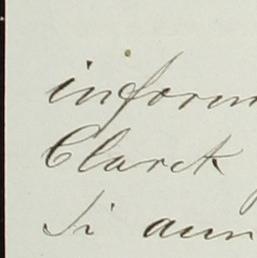 inform
Claret
Si aun